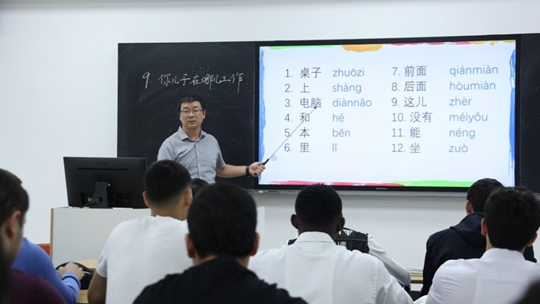 9 你儿子在哪儿工作
1. 桌子 zhuōzi
2. 上 shàng
3. 电脑 diànnǎo
4. 和 hé
5. 本 běn
6. 里 lǐ
7. 前面 qiánmiàn
8. 后面 hòumiàn
9. 这儿 zhèr
10. 没有 méiyǒu
11. 能 néng
12. 坐 zuò